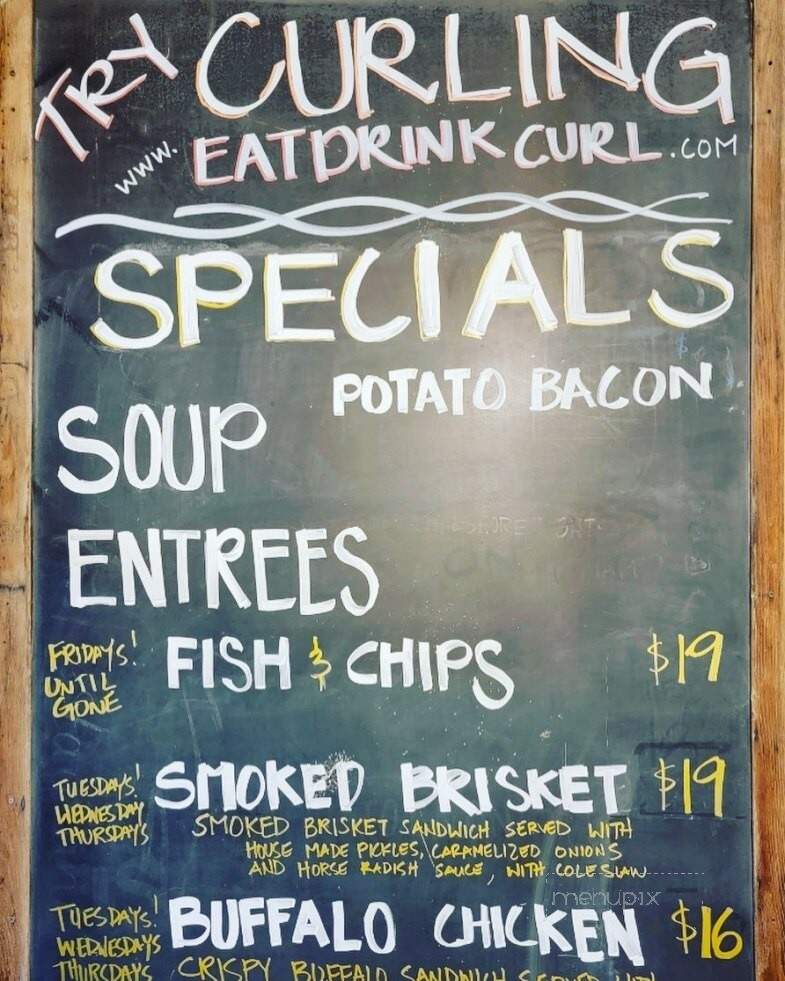 TRY CURLING
www. EATDRINKCURL.COM
SPECIALS
POTATO BACON
SOUP
ENTREES
FRIDAYS! FISH & CHIPS $19
UNTIL
GONE
TUESDAYS! SMOKED BRISKET $19
WEDNESDAY SMOKED BRISKET SANDWICH SERVED WITH
THURSDAYS HOUSE MADE PICKLES, CARAMELIZED ONIONS
AND HORSE RADISH SAUCE, WITH COLESLAW
menupix
TUESDAYS! BUFFALO CHICKEN $16
WEDNESDAYS
THURSDAYS CRISPY BUFFALO SANDWICH SERVED WITH